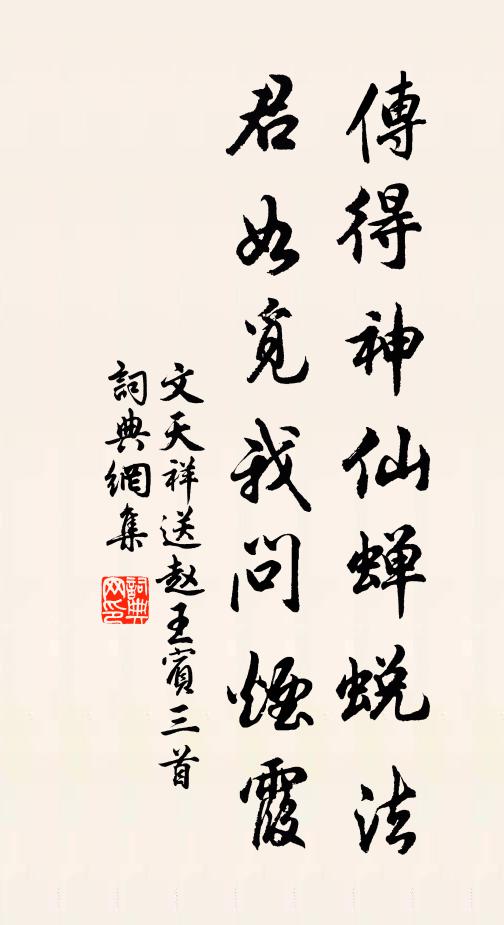 傳得神仙蟬蛻法
君如覓我問煙霞
文天祥送赵王賓三首
詞典網集
詞典
网印